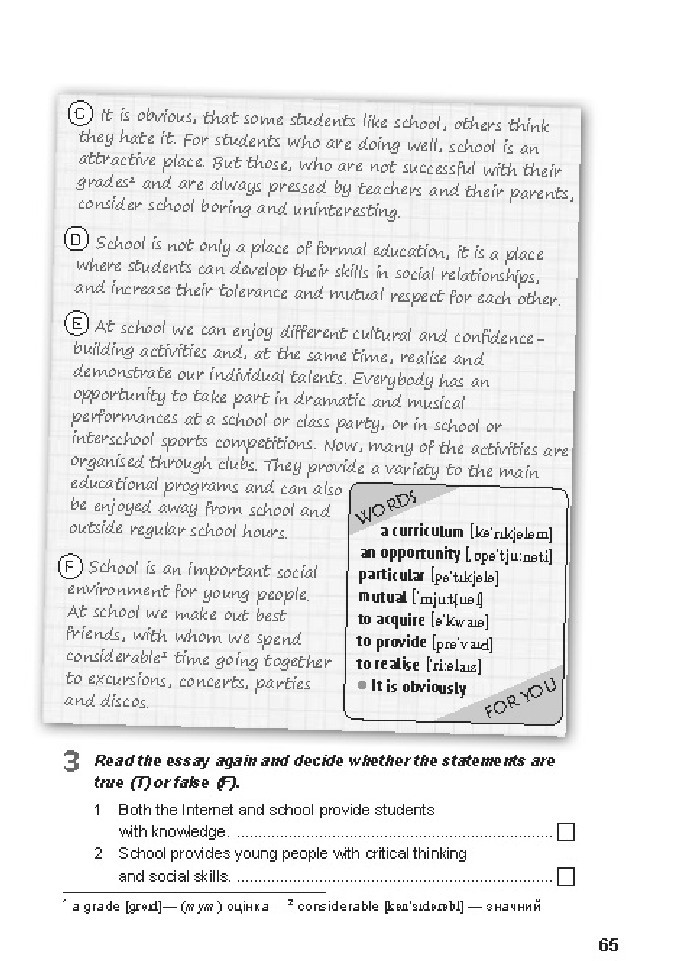 C It is obvious, that some students like school, others think
they hate it. For students who are doing well, school is an
attractive place. But those, who are not successful with their
grades¹ and are always pressed by teachers and their parents,
consider school boring and uninteresting.
D School is not only a place of formal education, it is a place
where students can develop their skills in social relationships,
and increase their tolerance and mutual respect for each other.
E At school we can enjoy different cultural and confidence-
building activities and, at the same time, realise and
demonstrate our individual talents. Everybody has an
opportunity to take part in dramatic and musical
performances at a school or class party, or in school or
interschool sports competitions. Now, many of the activities are
organised through clubs. They provide a variety to the main
educational programs and can also
be enjoyed away from school and
outside regular school hours.
F School is an important social
environment for young people.
At school we make out best
friends, with whom we spend
considerable² time going together
to excursions, concerts, parties
and discos.
WORDS
a curriculum
an opportunity
particular
mutual
to acquire
to provide
to realise
• It is obviously
FOR YOU
3 Read the essay again and decide whether the statements are
true (T) or false (F).
1 Both the Internet and school provide students
with knowledge.
2 School provides young people with critical thinking
and social skills.
¹ a grade [greɪd] — (тут) оцінка ² considerable — значний
65